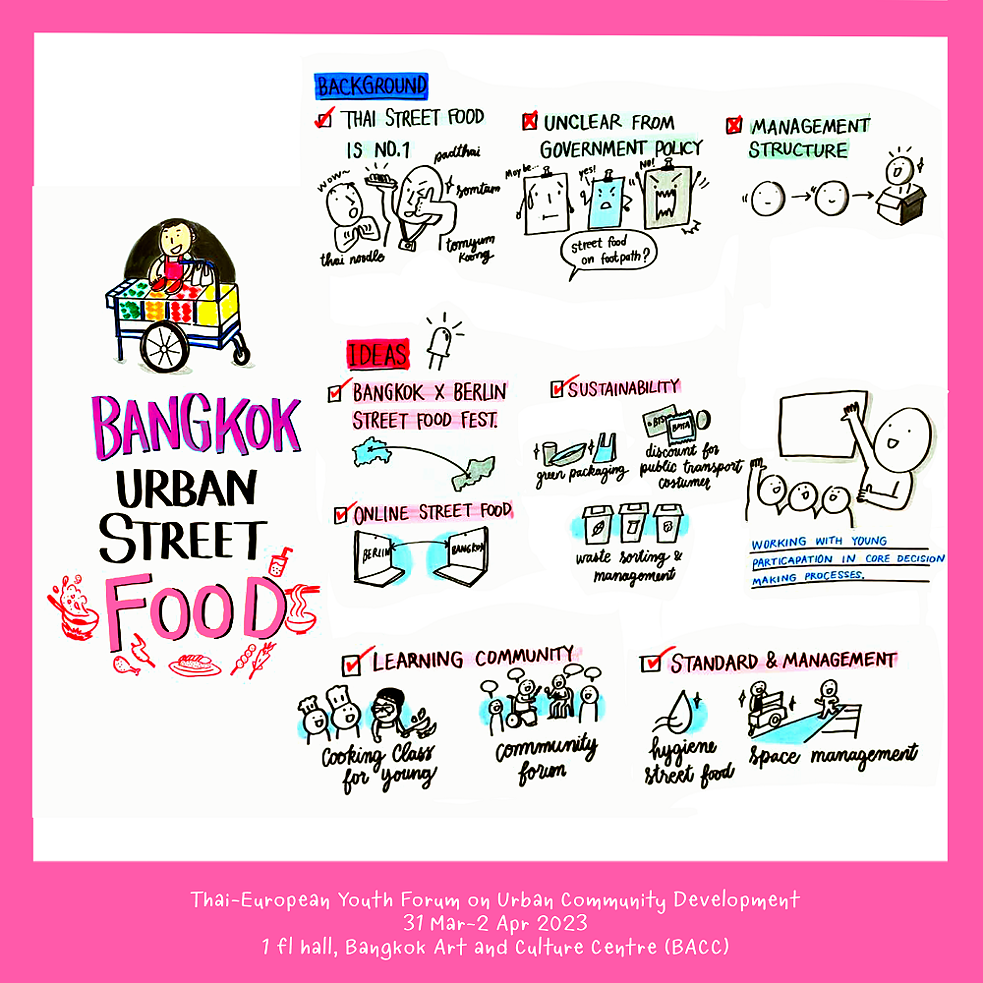 BANGKOK
URBAN
STREET
FOOD
BACKGROUND
THAI STREET FOOD
IS NO.1
wow~
padthai
somtam
tomyum
koong
thai noodle
UNCLEAR FROM
GOVERNMENT POLICY
May be...
yes!
NO!
street food
on footpath?
MANAGEMENT
STRUCTURE
IDEAS
BANGKOK X BERLIN
STREET FOOD FEST.
ONLINE STREET FOOD
BERLIN
BANGKOK
SUSTAINABILITY
green packaging
BTS
BMTA
discount for
public transport
costumer
waste sorting &
management
WORKING WITH YOUNG
PARTICAPATION IN CORE DECISION
MAKING PROCESSES.
LEARNING COMMUNITY
Cooking Class
for young
community
forum
STANDARD & MANAGEMENT
hygiene
street food
space management
Thai-European Youth Forum on Urban Community Development
31 Mar-2 Apr 2023
1 fl hall, Bangkok Art and Culture Centre (BACC)